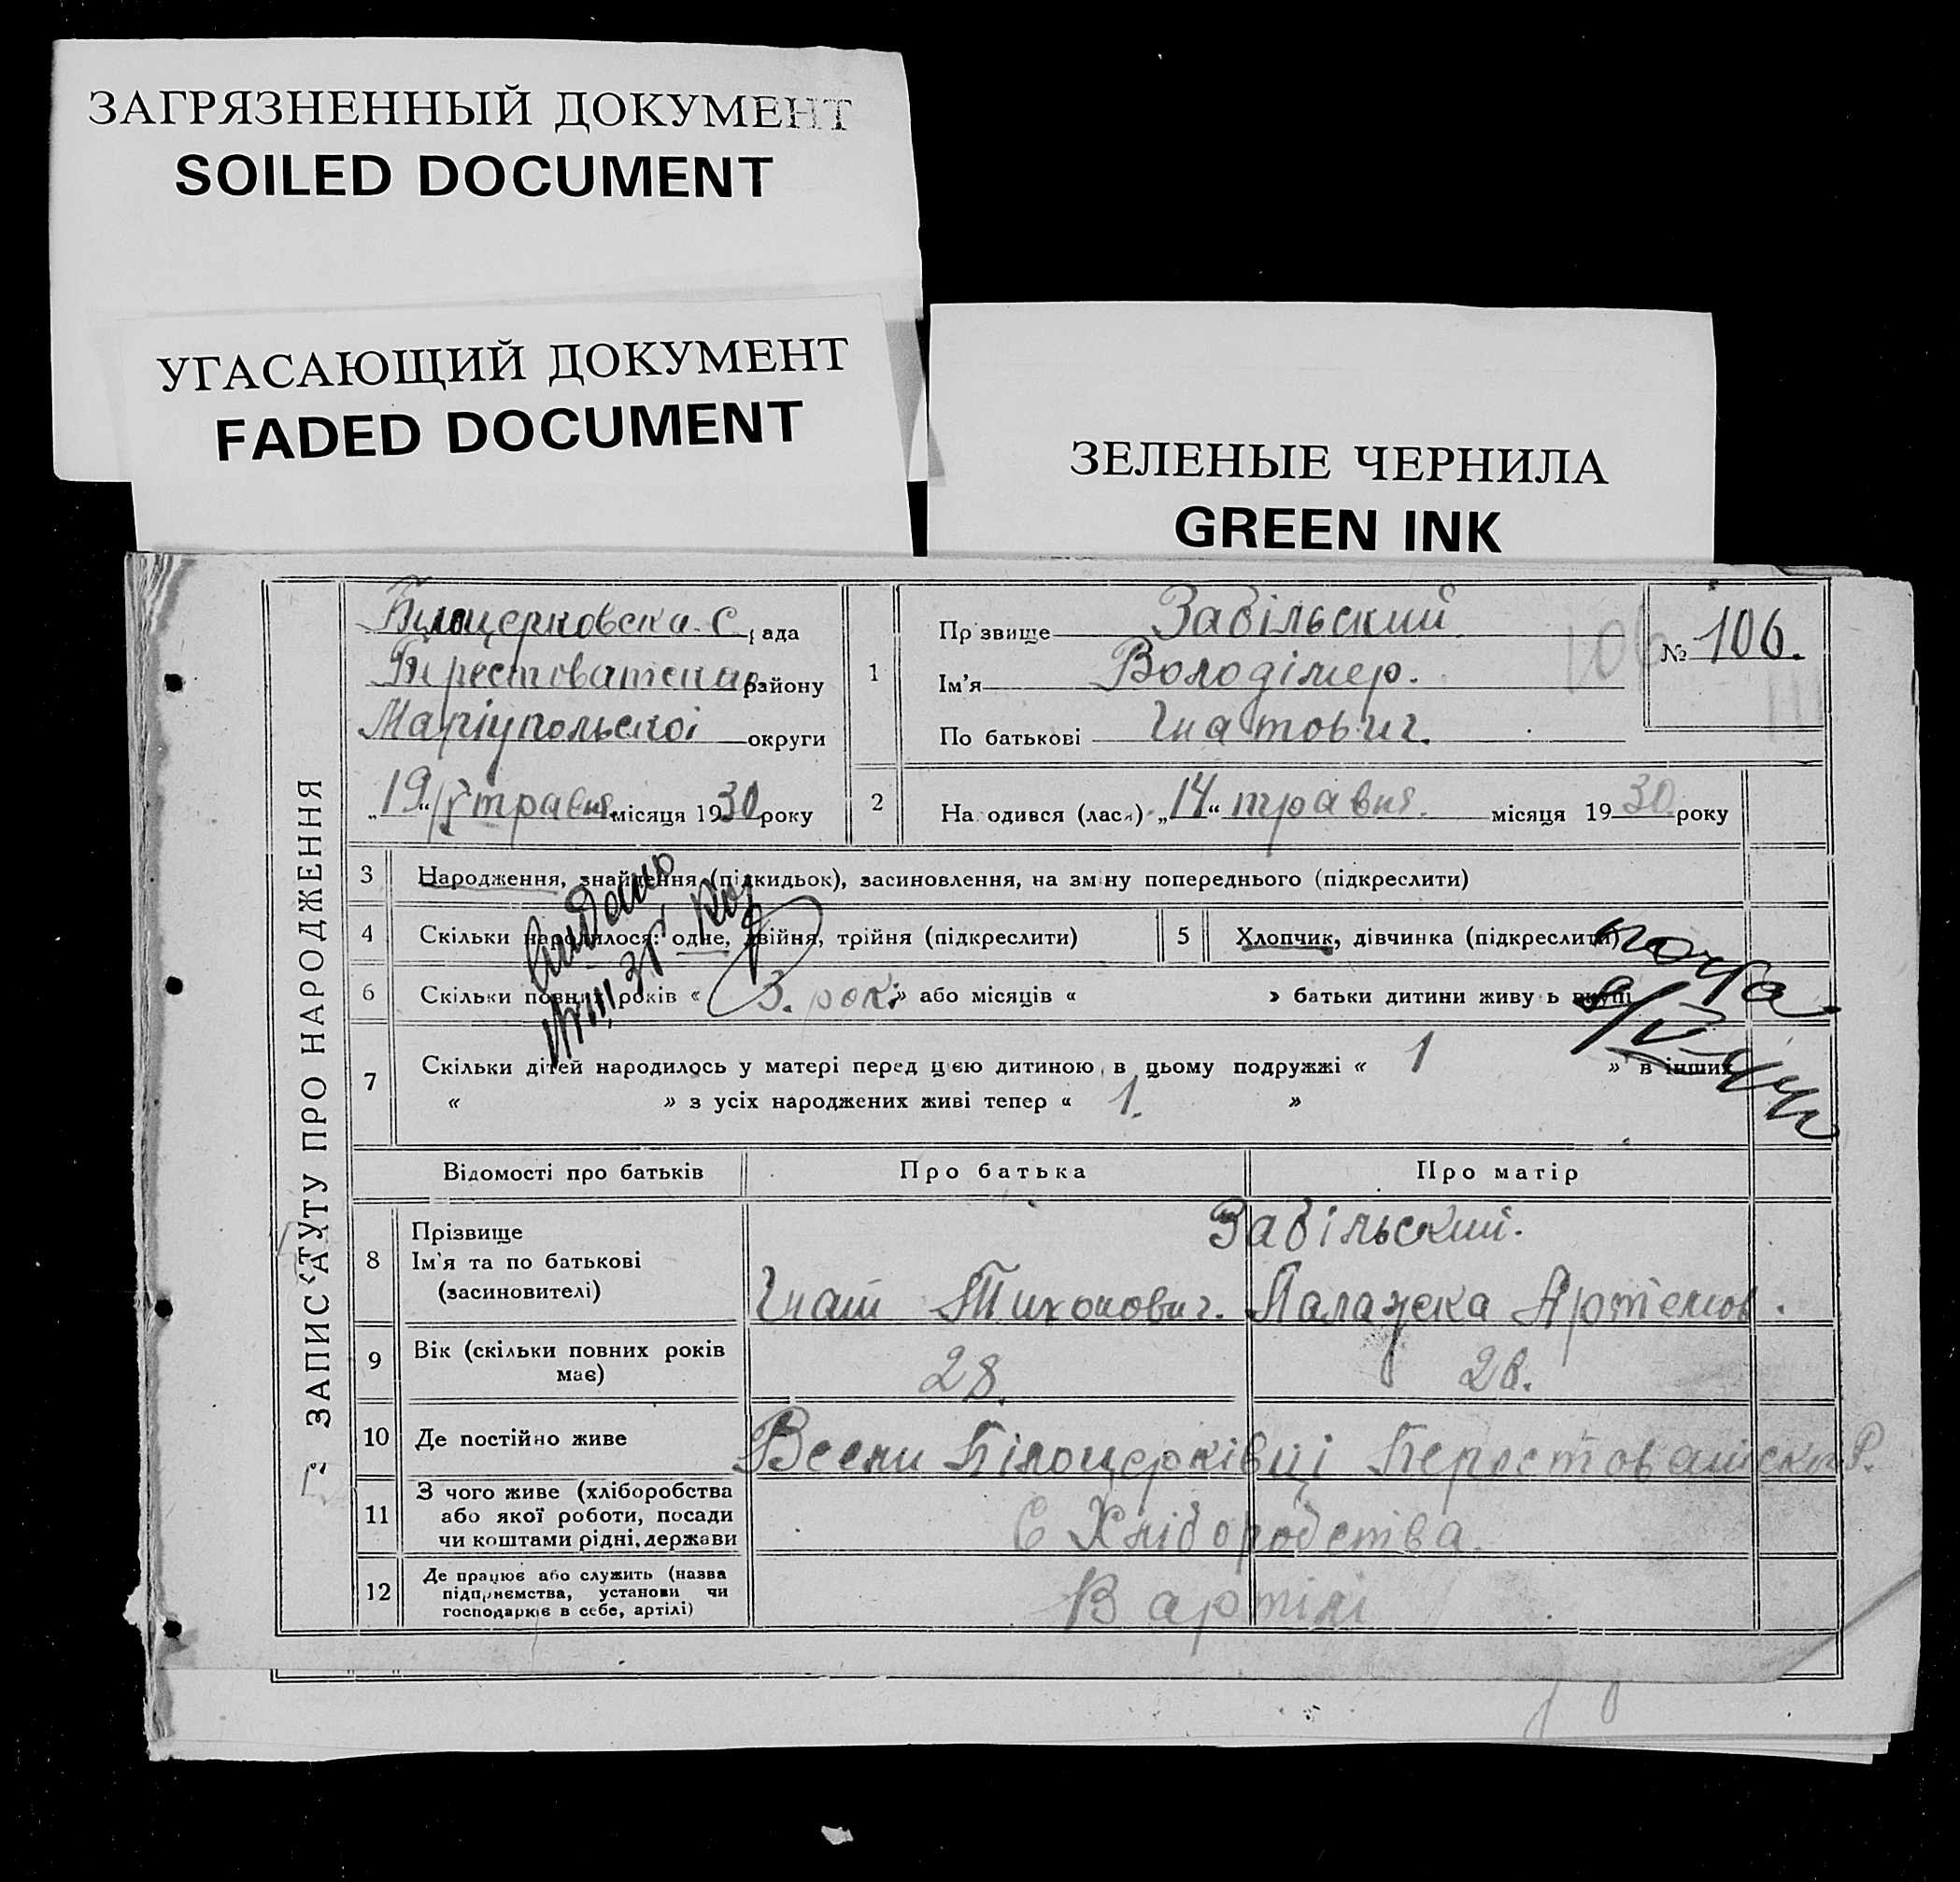 ЗАГРЯЗНЕННЫЙ ДОКУМЕНТ
SOILED DOCUMENT
УГАСАЮЩИЙ ДОКУМЕНТ
FADED DOCUMENT
ЗЕЛЕНЫЕ ЧЕРНИЛА
GREEN INK
ЗАПИС АКТУ ПРО НАРОДЖЕННЯ
Білоцерковска С рада
Берестоватска району
Маріупольскої округи
„19“ травня місяця 1930 року
1
Прізвище Забільский
Ім'я Володімер.
По батькові Гнатович.
№ 106.
106
2
На одився (лася) „14“ травня. місяця 1930 року
3 Народження, знайдення (підкидьок), засиновлення, на зміну попереднього (підкреслити)
4 Скільки народилося: одне, двійня, трійня (підкреслити)
5 Хлопчик, дівчинка (підкреслити)
6 Скільки повних років « 3. рокі » або місяців « » батьки дитини живу ь вкупі
7 Скільки дітей народилось у матері перед цією дитиною в цьому подружжі « 1 » в інших
« » з усіх народжених живі тепер « 1. »
Відомості про батьків Про батька Про матір
8 Прізвище
Ім'я та по батькові
(засиновителі)
Забільский.
Гнат Тихонович. Палажка Артемов.
9 Вік (скільки повних років
має)
28. 28.
10 Де постійно живе
Вселі Білоцерківці Берестоватска Р.
11 З чого живе (хліборобства
або якої роботи, посади
чи коштами рідні, держави
С Хліборобства.
12 Де працює або служить (назва
підприємства, установи чи
господаркіє в себе, артілі)
В артілі